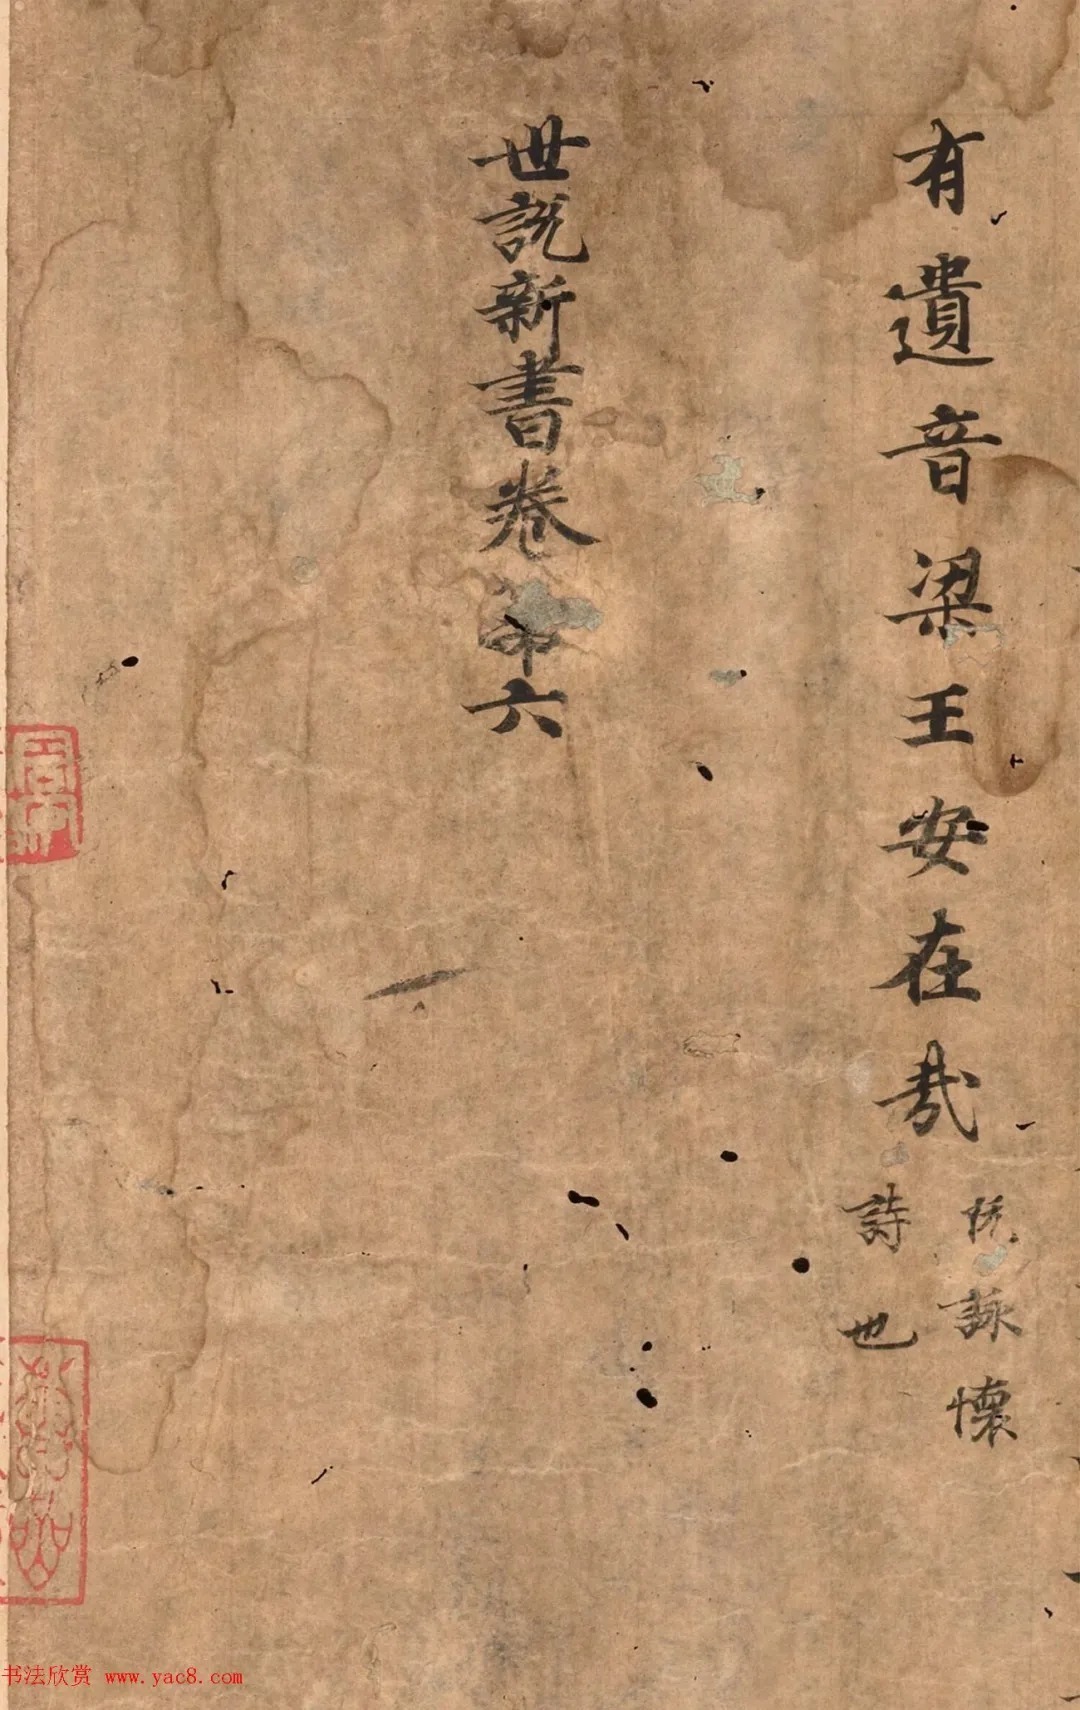 有遺音梁王安在哉
阮詠懷
詩也
世説新書卷第六
书法欣赏 www.yac8.com